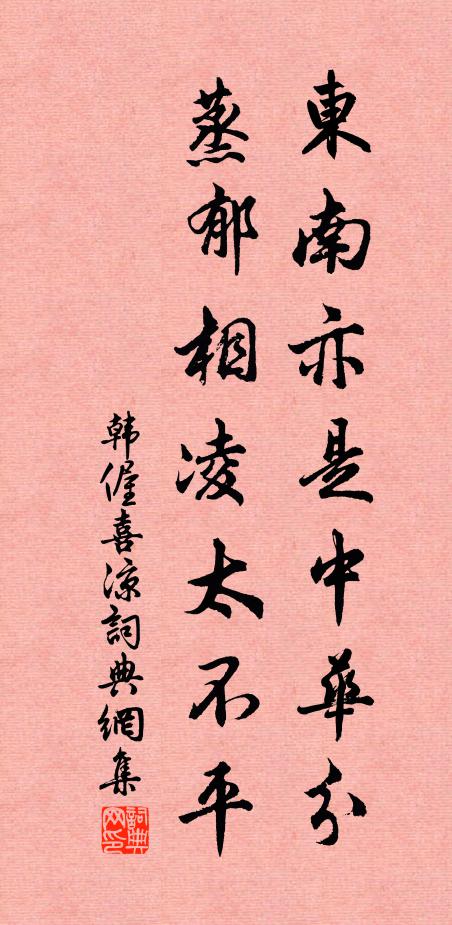 東南亦是中華分
蒸郁相凌太不平
韩偓喜凉詞典網集
詞典
网印